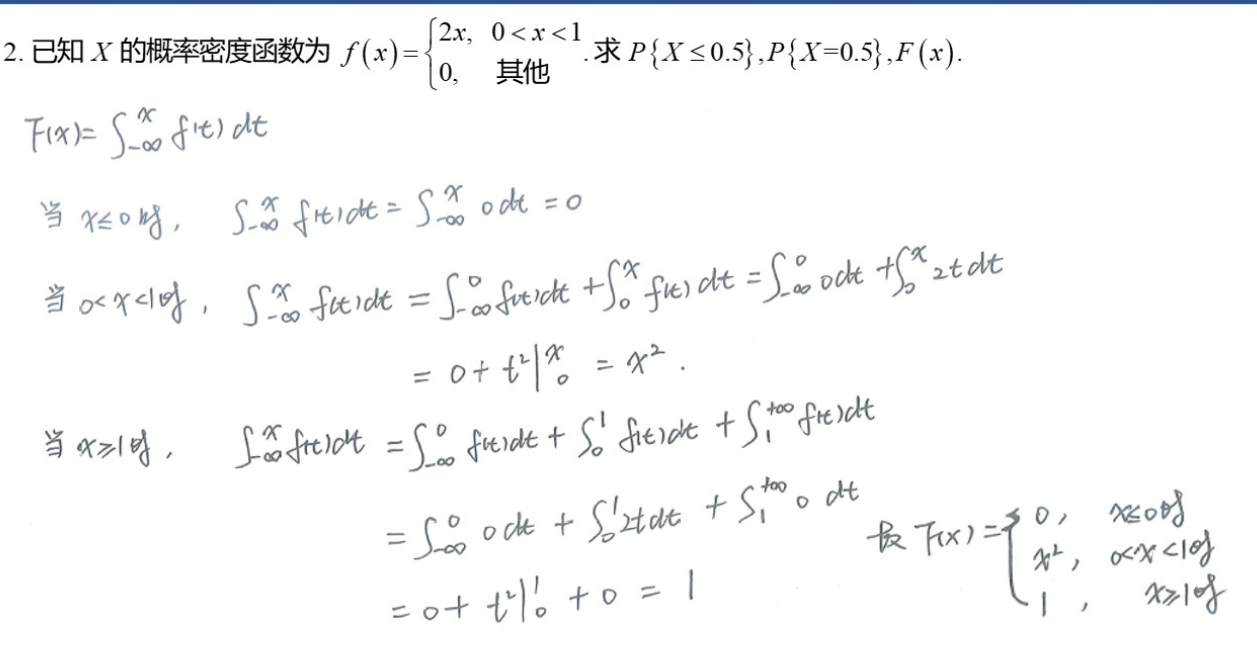 2. 已知 X 的概率密度函数为 f(x)={2x, 0<x<1; 0, 其他 .求 P{X≤0.5},P{X=0.5},F(x).
F(x)=∫_{-∞}^{x} f(t) dt
当 x≤0时, ∫_{-∞}^{x} f(t)dt = ∫_{-∞}^{x} 0 dt = 0
当 0<x<1时, ∫_{-∞}^{x} f(t)dt = ∫_{-∞}^{0} f(t)dt + ∫_{0}^{x} f(t) dt = ∫_{-∞}^{0} 0dt + ∫_{0}^{x} 2t dt
= 0 + t²|_{0}^{x} = x².
当 x≥1时, ∫_{-∞}^{x} f(t)dt = ∫_{-∞}^{0} f(t)dt + ∫_{0}^{1} f(t)dt + ∫_{1}^{+∞} f(t)dt
= ∫_{-∞}^{0} 0 dt + ∫_{0}^{1} 2t dt + ∫_{1}^{+∞} 0 dt
= 0 + t²|_{0}^{1} + 0 = 1
故 F(x)={0, x≤0时
x², 0<x<1时
1, x≥1时